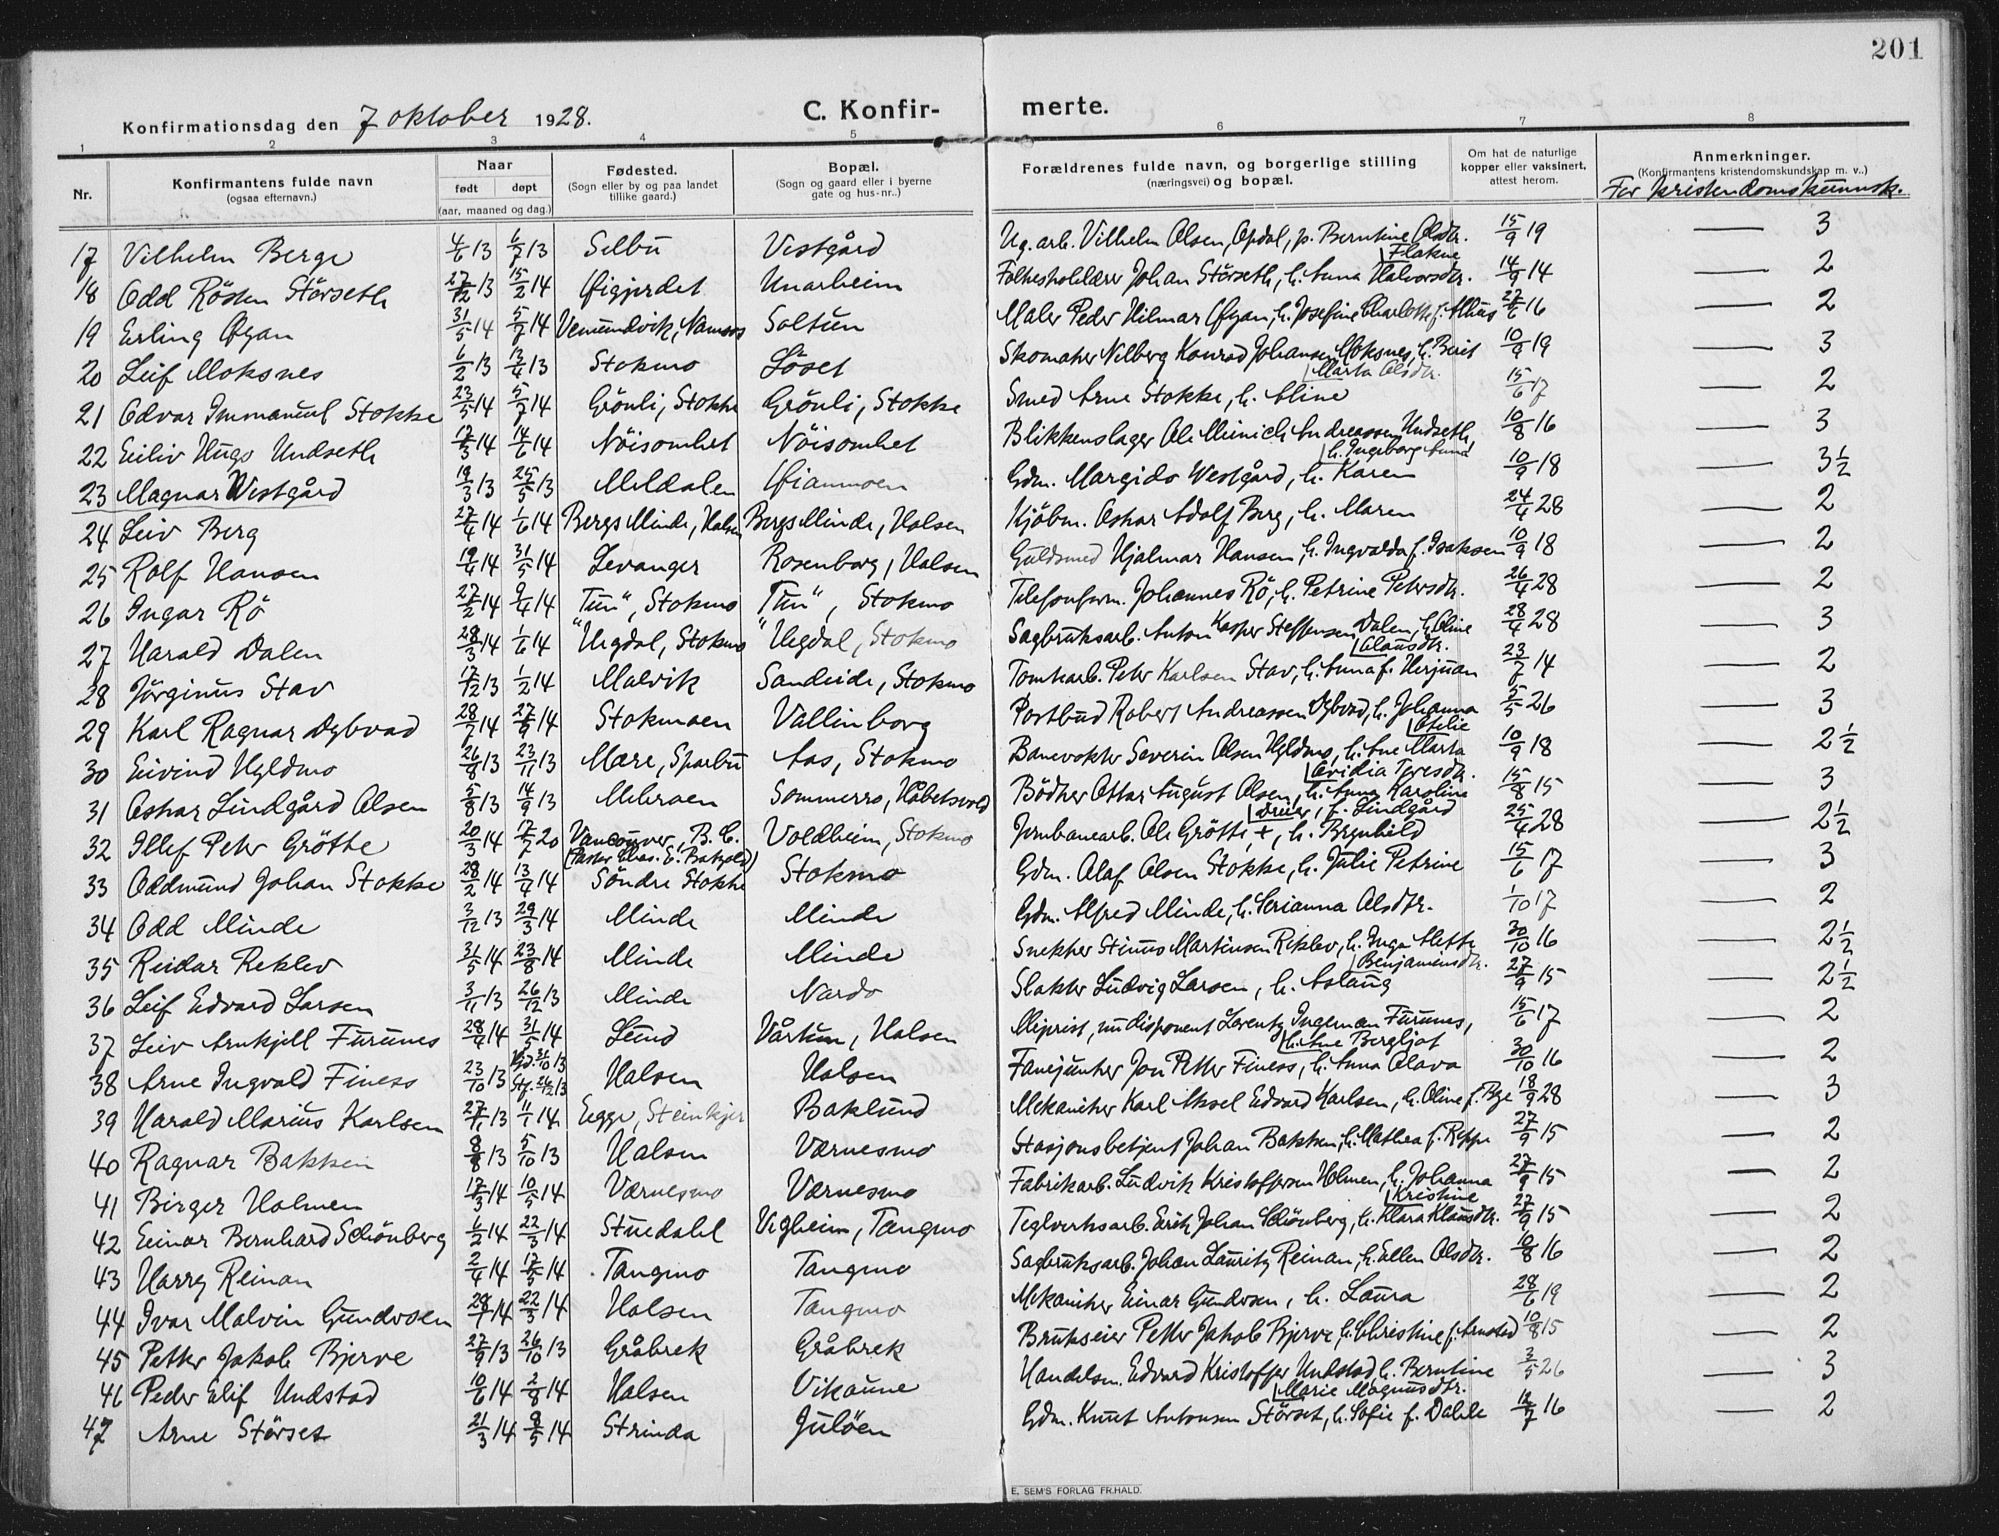 201
Konfirmationsdag den 7 oktober 1928. C. Konfir- merte.
1 2 3 4 5 6 7 8
Nr. Konfirmantens fulde navn (ogsaa efternavn.) Naar født døpt (aar, maaned og dag.) Fødested. (Sogn eller by og paa landet tillike gaard.) Bopæl. (Sogn og gaard eller i byerne gate og hus-nr.) Forældrenes fulde navn, og borgerlige stilling (næringsvei) og bopæl. Om hat de naturlige kopper eller vaksinert, attest herom. Anmerkninger. (Konfirmantens kristendomskundskap m. v.)
For kristendomskunnsk.
17 Vilhelm Berge 4/6 13 6/7 13 Selbu Vestgård Ug. arb. Vilhelm Olsen, Opdal, p. Berntine Olsdtr. Flakne 15/9 19 — 3
18 Odd Rösten Störseth 27/12 13 15/2 14 Öigjerdet Unarheim Folkeskolelærer Johan Störseth, h. Anna Halvorsdtr. 14/9 14 — 2
19 Erling Öyan 31/5 14 5/7 14 Vemundvik, Namsos Soltun Maler Peder Hilmar Öyan, h. Josefine Charlotte f. Alhus 27/6 16 — 2
20 Leif Moksnes 6/2 13 13/4 13 Stokmo Löset Skomaker Nilberg Konrad Johansen Moksnes, h. Berit Marta Olsdtr. 10/9 19 — 3
21 Odvar Immanuel Stokke 23/5 14 5/7 14 Grönli, Stokke Grönli, Stokke Smed Arne Stokke, h. Aline 15/6 17 — 2
22 Eiliv Hugo Undseth 17/3 14 14/6 14 Nöisomhet Nöisomhet Blikkenslager Ole Meinich Andreassen Undseth, h. Ingeborg Aune 10/8 16 — 3
23 Magnar Westgård 19/3 13 25/5 13 Meldalen Öianmoen Gdm. Margido Westgård, h. Karen 10/9 18 — 3½
24 Leiv Berg 27/4 14 1/6 14 Bergs Minde, Halsen Bergs Minde, Halsen Kjöbm. Oskar Adolf Berg, h. Maren 24/4 28 — 2
25 Rolf Hansen 19/4 14 31/5 14 Levanger Rosenborg, Halsen Guldsmed Hjalmar Hansen, h. Ingvalda f. Isaksen 10/9 18 — 2
26 Ingar Rö 27/2 14 9/4 14 "Tun", Stokmo "Tun", Stokmo Telefonform. Johannes Rö, h. Petrine Petersdtr. 26/4 28 — 2
27 Harald Dalen 28/3 14 1/6 14 Vegdal, Stokmo Vegdal, Stokmo Sagbruksarb. Anton Kasper Steffensen Dalen, h. Oline Clausdtr. 28/4 28 — 3
28 Jörginus Stav 17/12 13 1/2 14 Malvik Sandeide, Stokmo Tomtearb. Peter Karlsen Stav, h. Anna f. Herjuan 23/7 14 — 2
29 Karl Ragnar Dybvad 28/7 14 27/9 14 Stokmoen Vallinborg Postbud Robert Andreassen Dybvad, h. Johanna Otelie 5/5 26 — 3
30 Eivind Hyldmo 26/8 13 23/11 13 Mære, Sparbu Aas, Stokmo Banevokter Severin Olsen Hyldmo, h. Ane Marta Ovidia Toresdtr. 10/9 18 — 2½
31 Oskar Lindgård Olsen 5/8 13 14/9 13 Mebraen Sommerro, Håbetsvold Bödker Ottar August Olsen, h. Anna Karoline Drier, f. Lindgård 15/8 15 — 3
32 Illef Peter Grötte 20/3 14 17/2 20 Vancouver, B. C. (Pastor Chas. E. Batzold) Voldheim, Stokmo Jernbanearb. Ole Grötte, +, h. Brynhild 25/4 28 — 2½
33 Oddmund Johan Stokke 28/2 14 13/4 14 Söndre Stokke Stokmo Gdm. Olaf Olsen Stokke, h. Julie Petrine 15/6 17 — 3
34 Odd Minde 3/12 13 29/3 14 Minde Minde Gdm. Alfred Minde, h. Serianna Olsdtr. 1/10 17 — 2
35 Reidar Reklev 31/5 14 23/8 14 Minde Minde Snekker Stinus Martinsen Reklev, h. Inga Mette Benjaminsdtr. 30/10 16 — 2½
36 Leif Edvard Larsen 3/11 13 26/12 13 Minde Nardo Slakter Ludvig Larsen, h. Aslaug 27/9 15 — 2½
37 Leiv Arnkjell Furunes 28/4 14 31/5 14 Lund Vårtun, Halsen Meierist, nu disponent Lorentz Ingeman Furunes, h. Ane Bergljot 15/6 17 — 2
38 Arne Ingvald Finess 23/10 13 Hjd. 31/10 13 Stf. 26/12 13 Halsen Halsen Fanejunker Jon Petter Finess, h. Anna Olava 30/10 16 — 2
39 Harald Marius Karlsen 27/11 13 11/1 14 Egge, Steinkjer Baklund Mekaniker Karl Aksel Edvard Karlsen, h. Oline f. Bye 18/9 28 — 3
40 Ragnar Bakken 8/8 13 5/10 13 Halsen Værnesmo Stasjonsbetjent Johan Bakken, h. Mathea f. Reppe 27/9 15 — 2
41 Birger Holmen 17/3 14 10/5 14 Værnesmo Værnesmo Fabrikarb. Ludvik Kristoffersen Holmen, h. Johanna Kristine 27/9 15 — 2
42 Einar Bernhard Schönberg 6/2 14 22/3 14 Stuedahl Vegheim, Tangmo Teglverksarb. Erik Johan Schönberg, h. Klara Klausdtr. 27/9 15 — 2
43 Harry Reinan 2/4 14 17/5 14 Tangmo Tangmo Sagbruksarb. Johan Lauritz Reinan, h. Ellen Olsdtr. 10/8 16 — 2
44 Ivar Malvin Gundersen 28/1 14 22/3 14 Halsen Tangmo Mekaniker Einar Gundersen, h. Laura 28/6 19 — 2
45 Petter Jakob Bjerve 27/9 13 26/10 13 Gråbrek Gråbrek Brukseier Petter Jakob Bjerve, h. Christine f. Arnstad 10/8 15 — 2
46 Peder Elif Undstad 10/6 14 2/8 14 Halsen Vikaune Handelsm. Edvard Kristoffer Undstad, h. Berntine Marie Magnusdtr. 3/5 26 — 3
47 Arne Störset 21/3 14 8/5 14 Strinda Julöen Gdm. Knut Antonsen Störset, h. Sofie f. Dahle 12/7 16 — 2
E. SEM'S FORLAG FR.HALD.